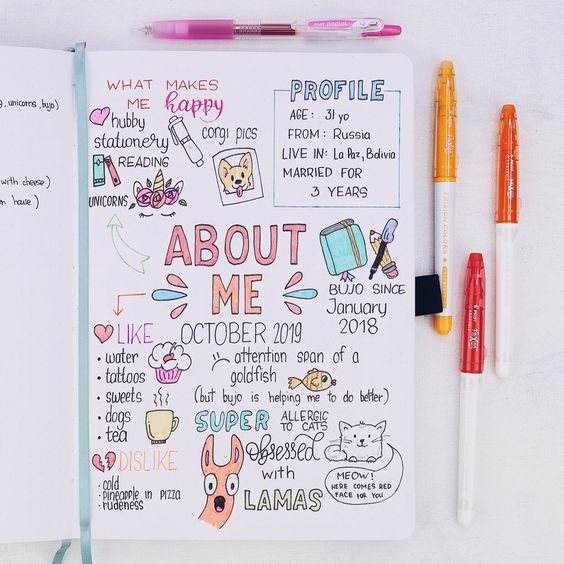 , unicorns, bujo)
with cheese)
WHAT MAKES
ME happy
hubby
stationery
corgi pics
READING
UNICORNS
PROFILE
AGE: 31 yo
FROM: Russia
LIVE IN: La Paz, Bolivia
MARRIED FOR
3 YEARS
ABOUT
ME
BUJO SINCE
January
2018
OCTOBER 2019
LIKE
• water
• tattoos
• sweets
• dogs
• tea
attention span of a
goldfish
(but bujo is helping me to do better)
SUPER ALLERGIC
TO CATS
obsessed
with
LAMAS
MEOW!
HERE COMES RED
FACE FOR YOU
DISLIKE
• cold
• pineapple in pizza
• rudeness